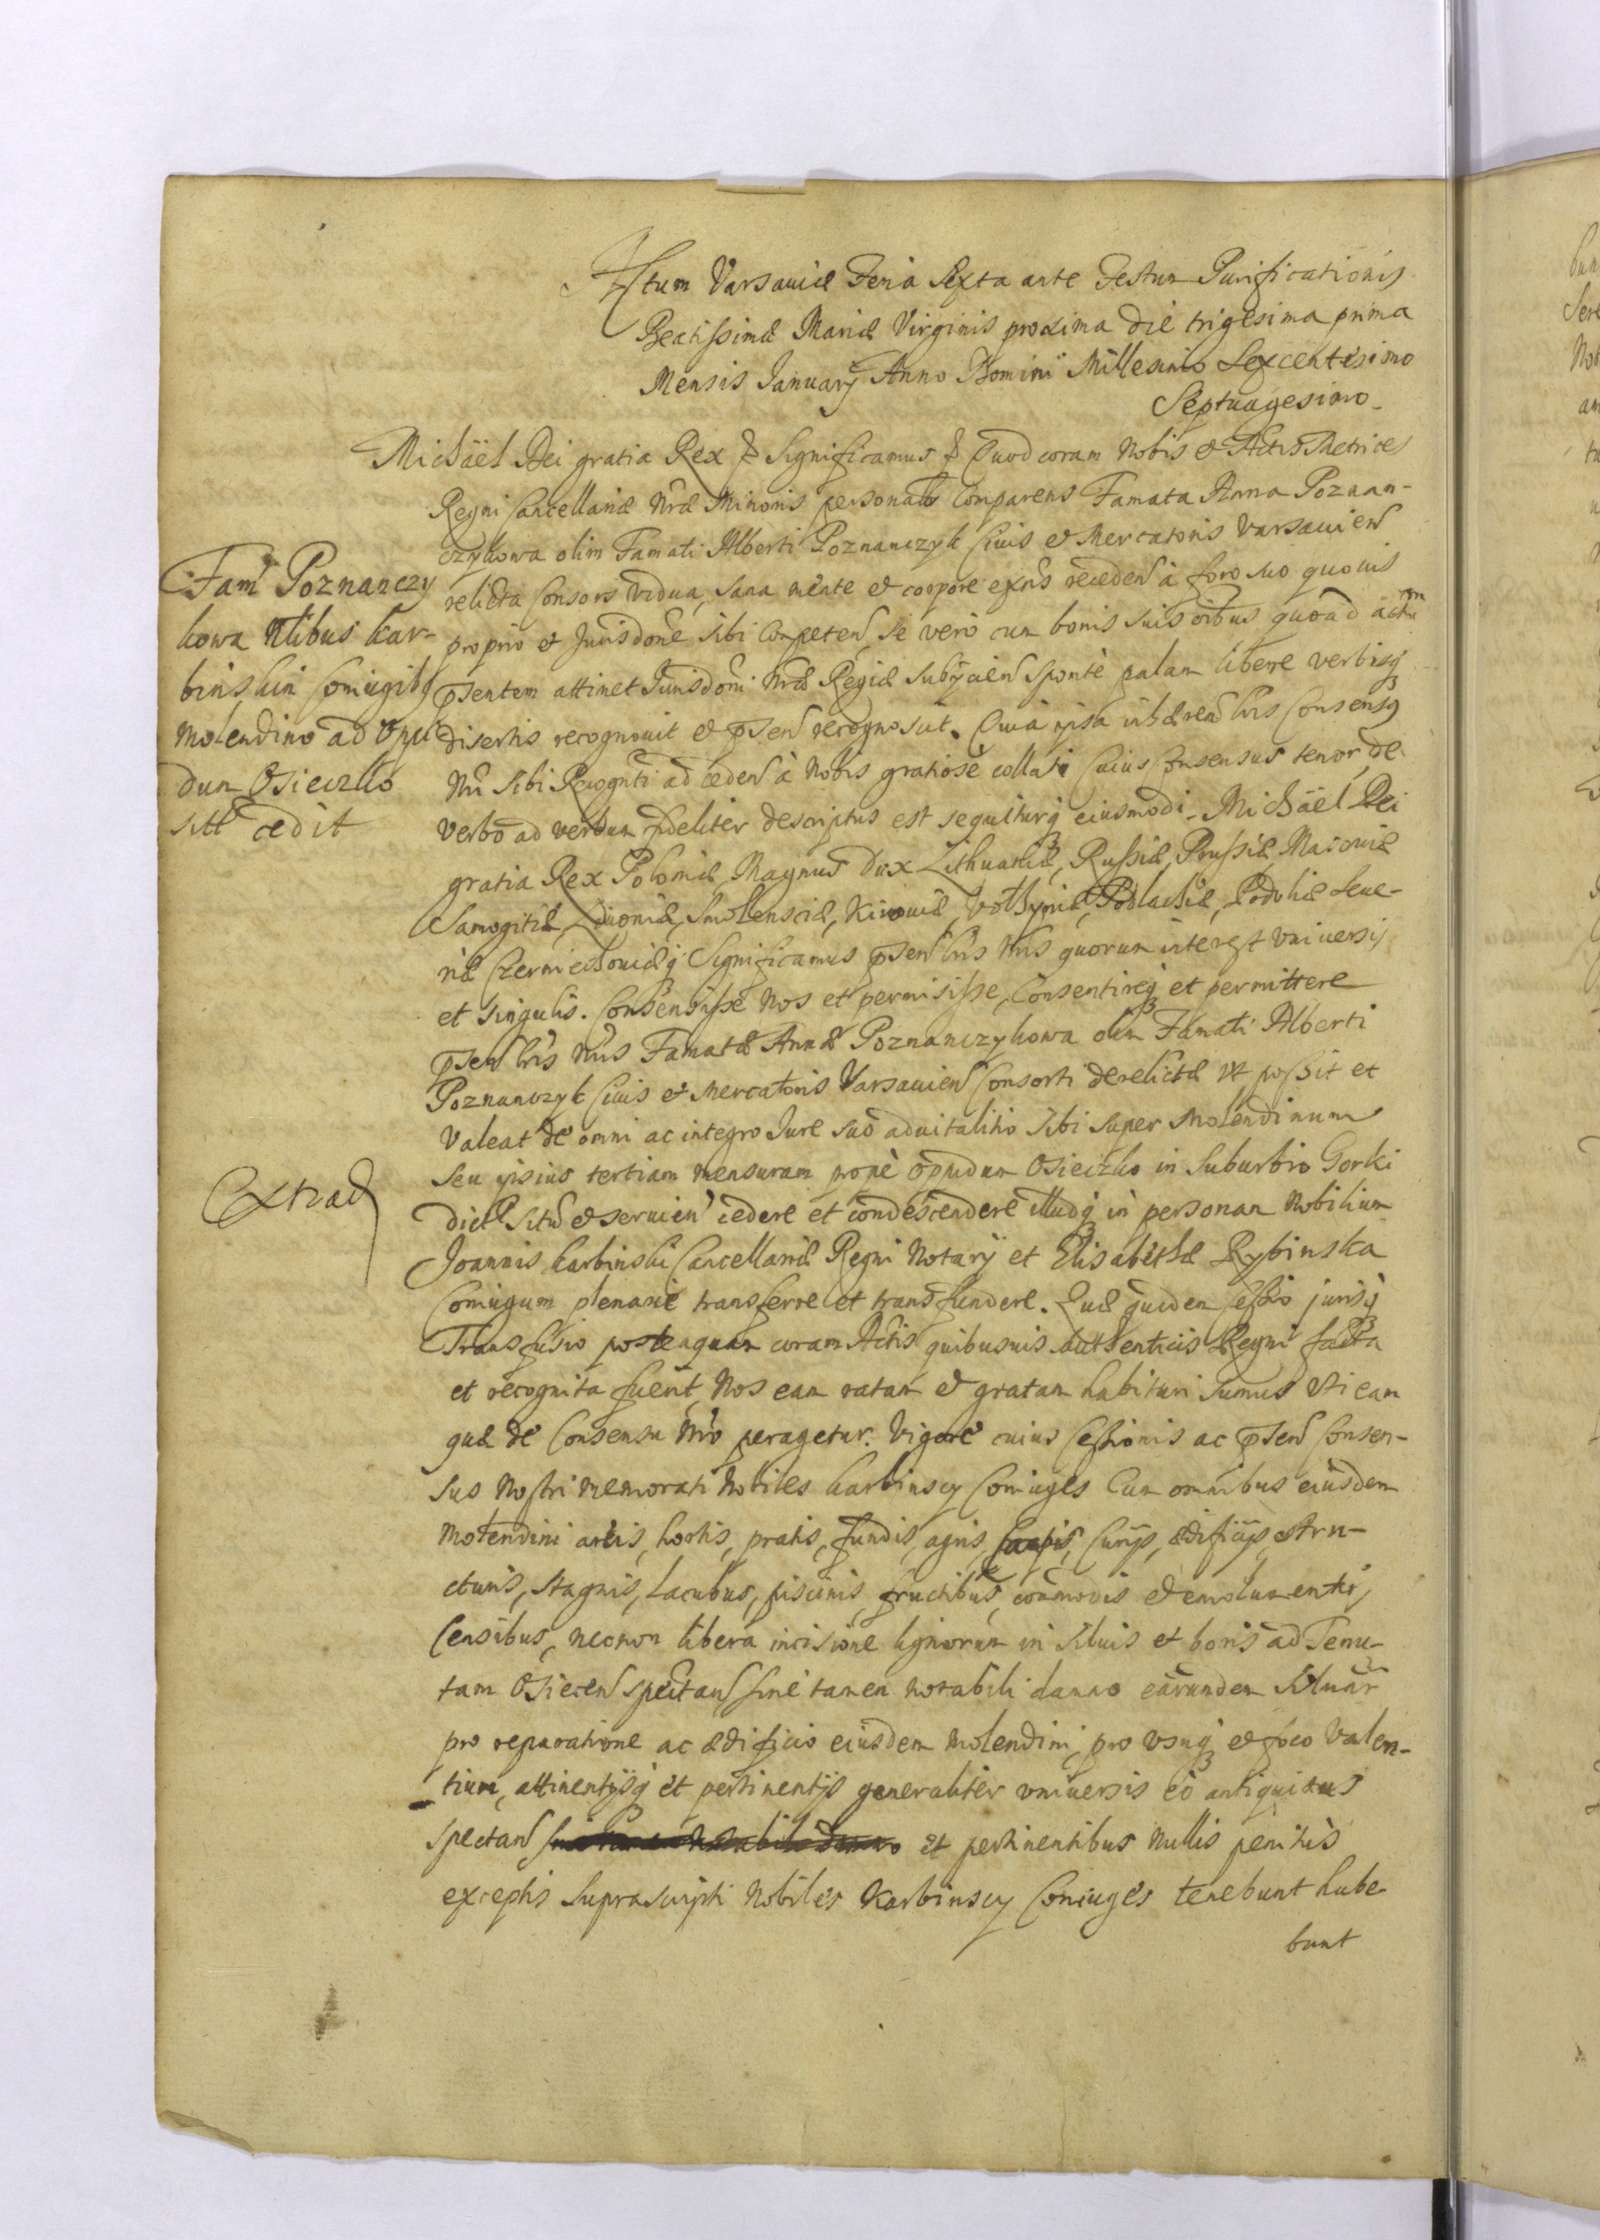 Actum Varsaviæ Feria Sexta ante Festum Purificationis
Beatissimæ Mariæ Virginis proxima die trigesima prima
Mensis Januarij Anno Domini Millesimo Sexcentesimo
Septuagesimo
Michäel Dei gratia Rex & Significamus & Quod coram Nobis et Actis Metrices
Regni Cancellariæ Nræ Minoris personalr Comparens Famata Anna Poznan-
czykowa olim Famati Alberti Poznanczyk Civis et Mercatoris Varsavien
relicta Consors vidua, sana mente et corpore exns recedens à foro suo quovis
proprio et Jurisdone sibi Competen, se vero cum bonis suis oibus quoad actum
psentem attinet Jurisdoni Nræ Regiæ subijcien sponte palam libere verbisq
disertis recognovit et psen recognoscit. Quia ipsa inhæren lris Consensq
Nri sibi Recognti ad ceden à Nobis gratiose collati Cuius Consensus tenor de
verbo ad verbum fideliter descriptus est sequiturq eiusmodi. Michäel Dei
gratia Rex Poloniæ, Magnus Dux Lithuaniæ, Russiæ, Prussiæ, Masoviæ
Samogitiæ, Livoniæ, Smolensciæ, Kiioviæ, Volhyniæ, Podlachiæ, Podoliæ Seve-
riæ Czerniechoviæq Significamus psen lris Nris quorum interest universis
et singulis. Consensisse Nos et permisisse, Consentireq et permittere
psen lris Nris Famatæ Annæ Poznanczykowa olim Famati Alberti
Poznanczyk Civis et Mercatoris Varsavien Consorti derelictæ ut possit et
valeat de omni ac integro Jure suo advitalitio sibi super Molendinum
seu ipsius tertiam mensuram prope opidum Osieczko in Suburbio Gorki
dict situ et servien cedere et condescendere illudq in personam Nobilium
Joannis Karbinski Cancellariæ Regni Notarij et Elisabethæ Rybinska
Coniugum plenarie transferre et transfundere. Quæ quidem Cessio jurisq
Transfusio posteaquam coram Actis quibusvis authenticis Regni facta
et recognita fuerit, Nos eam ratam et gratam habituri sumus uti eam
quæ de Consensu Nro peragetur. Vigore cuius Cessionis ac psen Consen-
sus Nostri memorati Nobiles Karbinscy Coniuges Cum omnibus eiusdem
Molendini areis, hortis, pratis, fundis, agris, Curijs, ædificijs, stru-
cturis, stagnis, Lacubus, piscinis, fructibus, commodis et emolumentis,
Censibus, necnon libera incisione lignorum in Silvis et boris ad Tenu-
tam Osiecen spectan sine tamen notabili damno earundem Silvar
pro reparatione ac ædificio eiusdem Molendini, pro usuq et foco valen-
tium, attinentijsq et pertinentijs generaliter universis eò antiquitus
spectan et pertinentibus Nullis penitùs
exceptis suprascripti Nobiles Karbinscy Coniuges tenebunt habe
bunt
Fam Poznanczy
kowa Nlibus Kar-
binskim Coniugibq
Molendino ad Opi
dum Osieczko
sitt cedit
Extrad